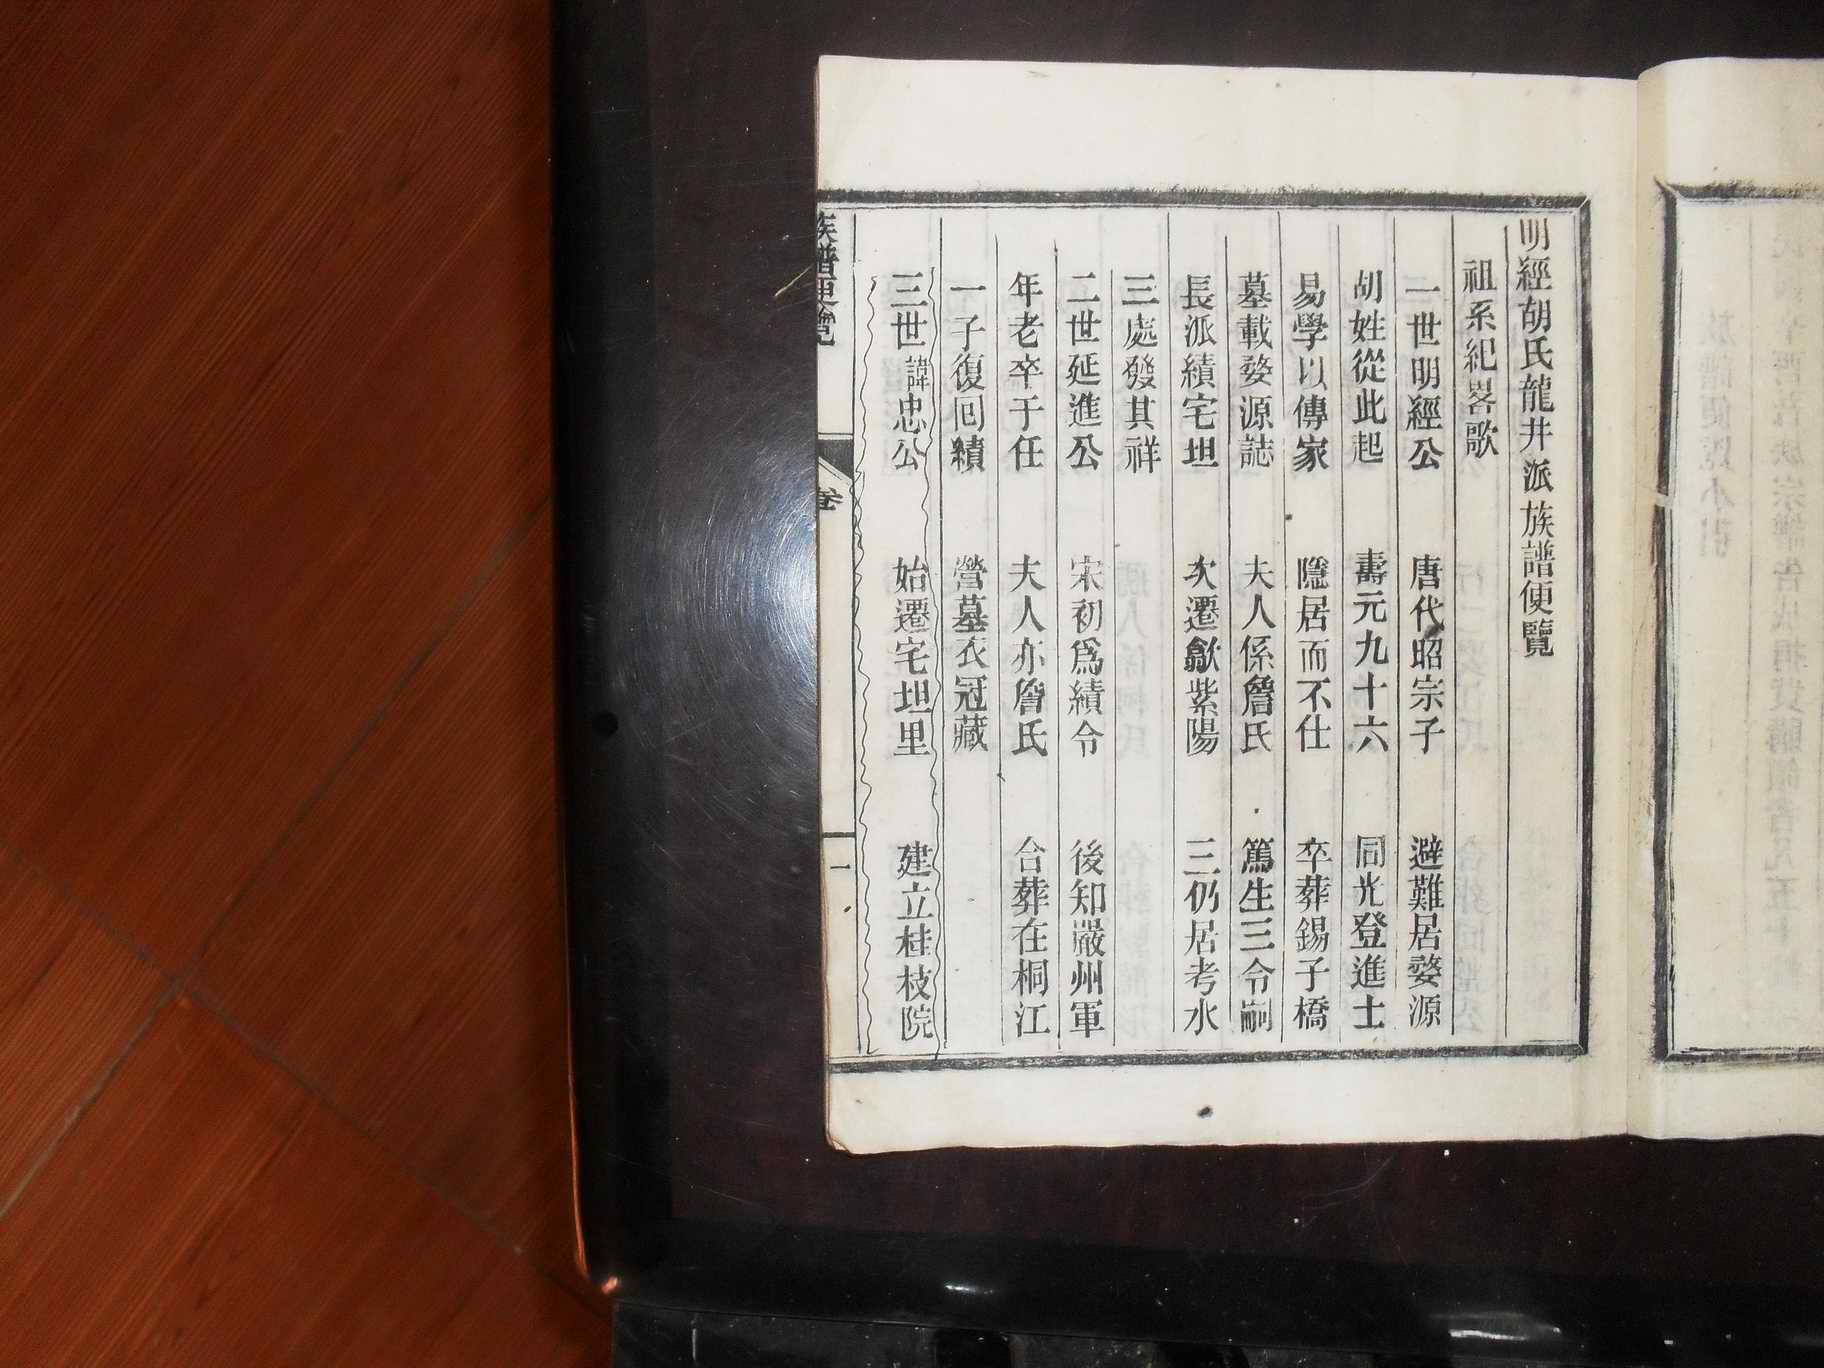 明經胡氏龍井派族譜便覽
祖系紀畧歌
一世明經公　唐代昭宗子　避難居婺源
胡姓從此起　壽元九十六　同光登進士
易學以傳家　隱居而不仕　卒葬錫子橋
墓載婺源誌　夫人係詹氏　篤生三令嗣
長派績宅坦　次遷歙紫陽　三仍居考水
三處發其祥
二世延進公　宋初爲績令　後知嚴州軍
年老卒于任　夫人亦詹氏　合葬在桐江
一子復回績　營墓衣冠藏
三世諱忠公　始遷宅坦里　建立桂枝院
族譜便覽　卷　一